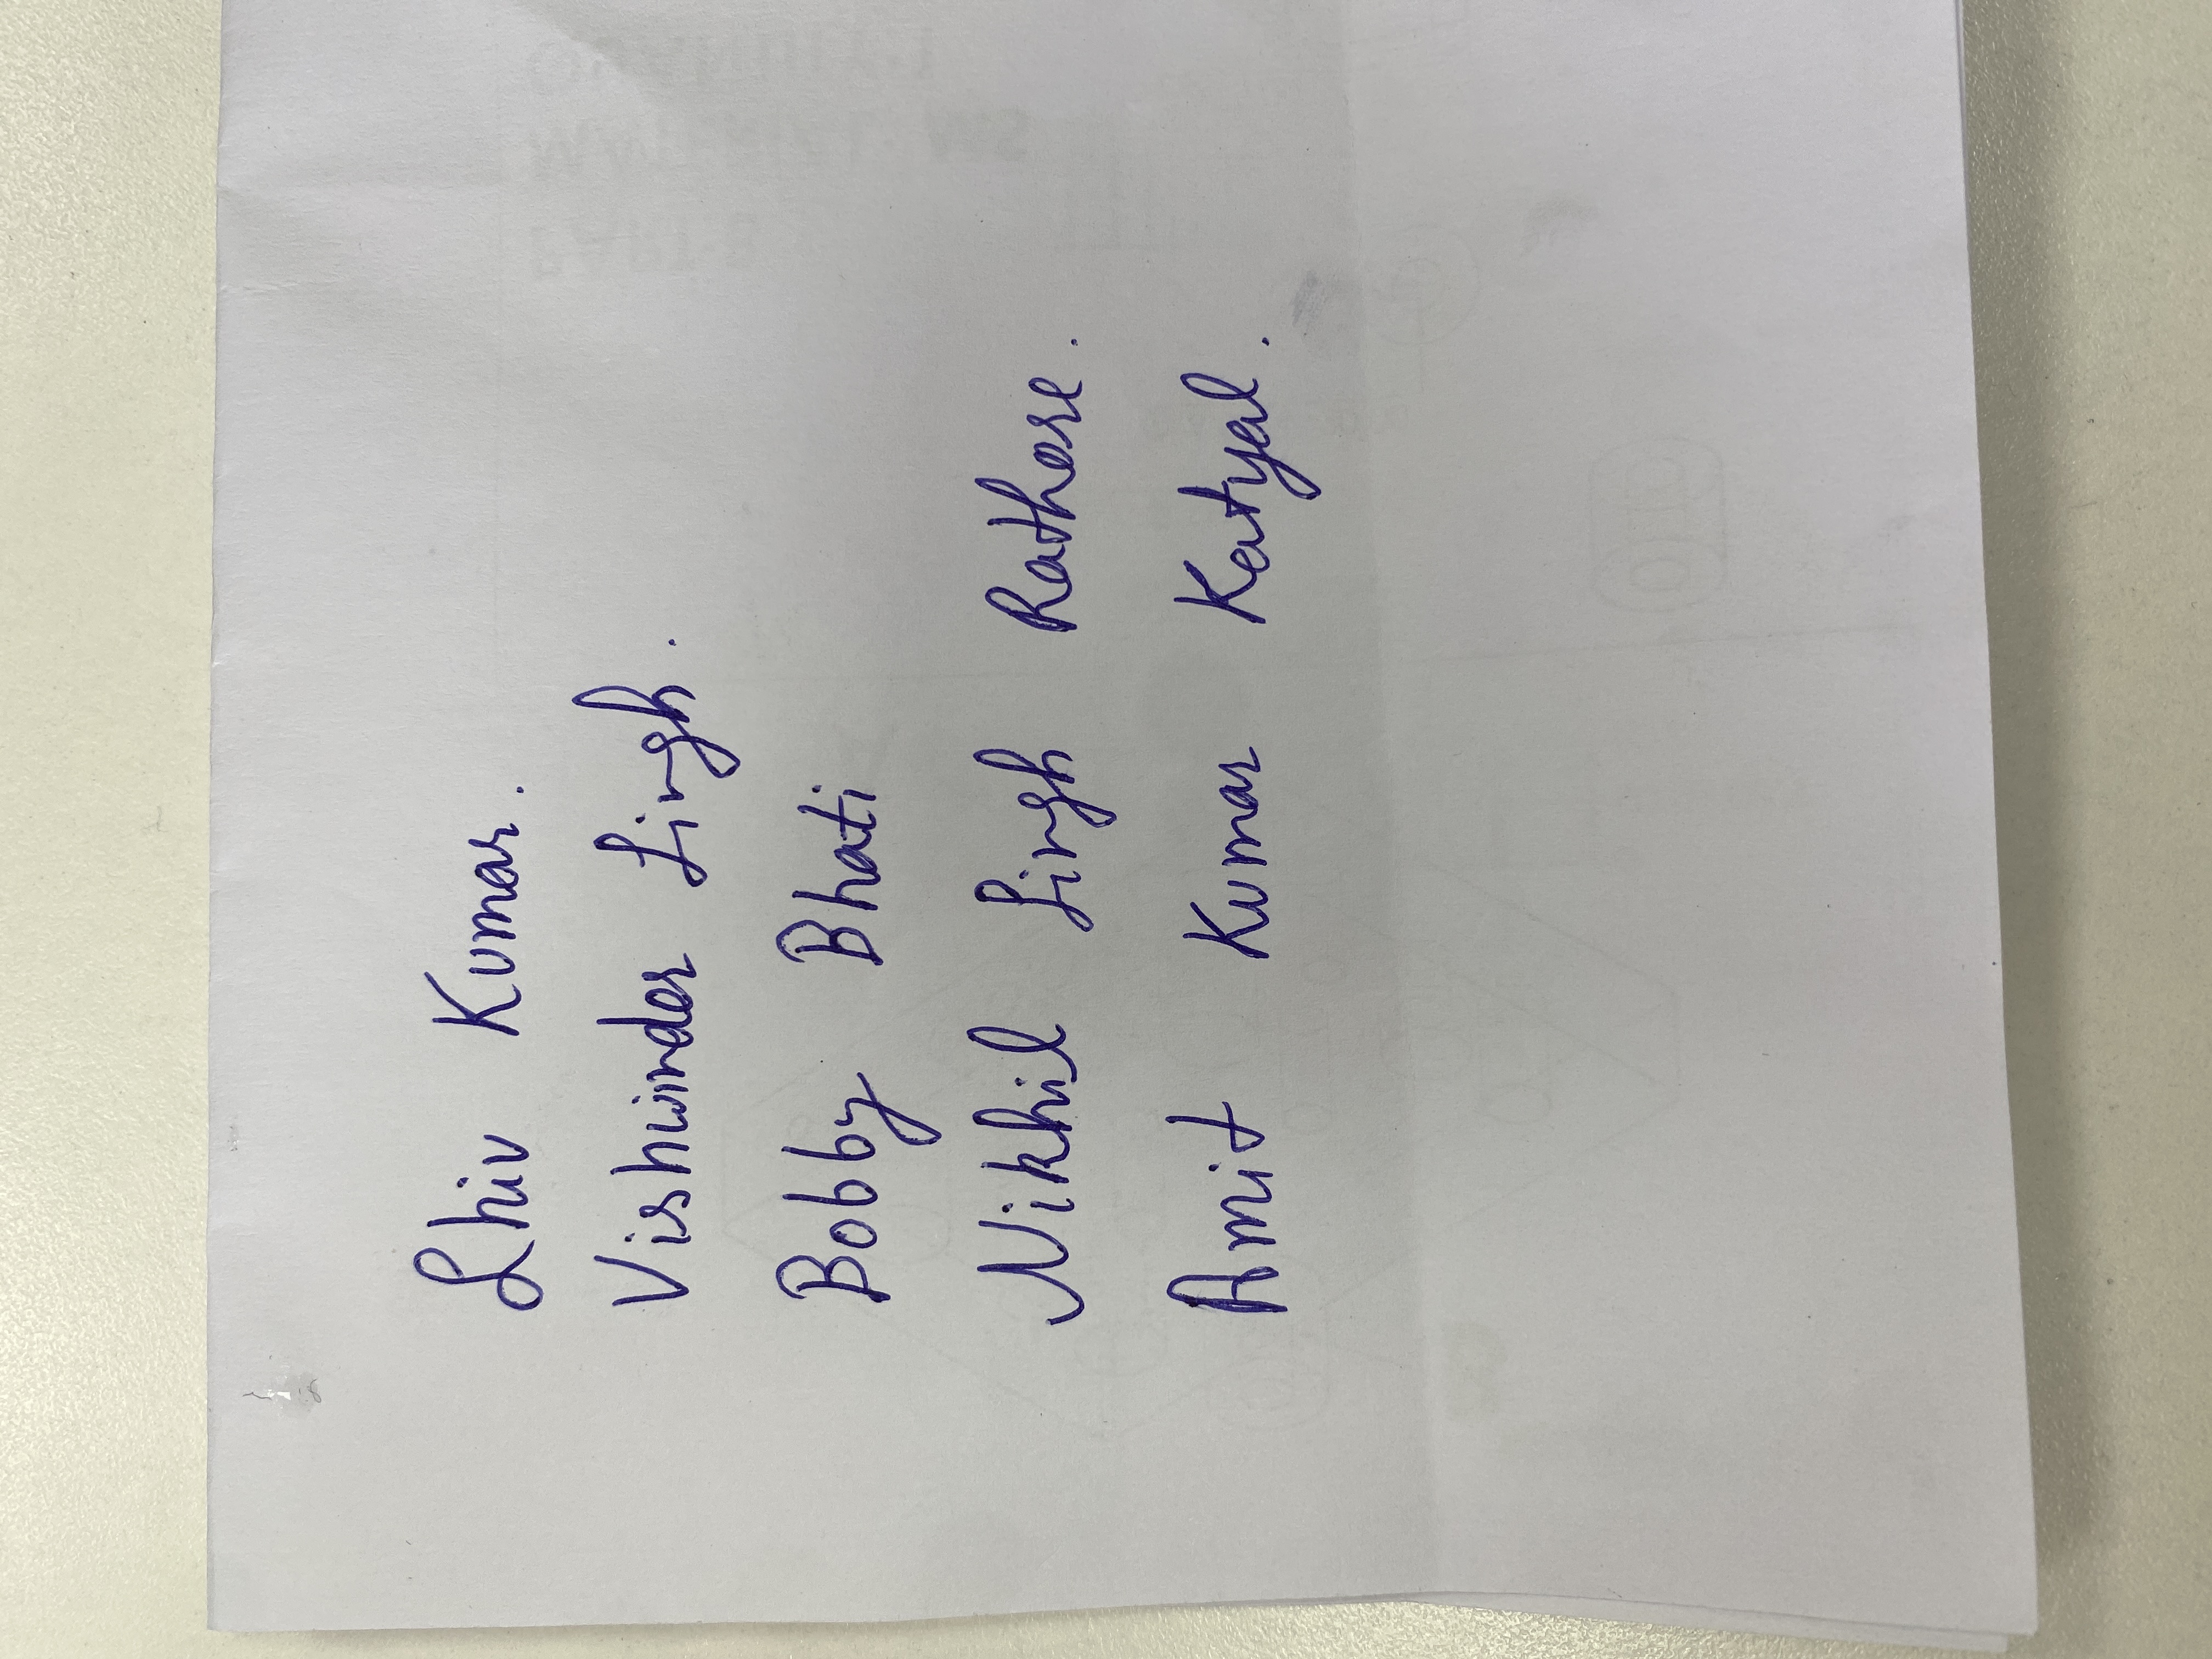 Shiv Kumar.
Vishwinder Singh.
Bobby Bhati
Nikhil Singh Rathore.
Amit Kumar Katyal.